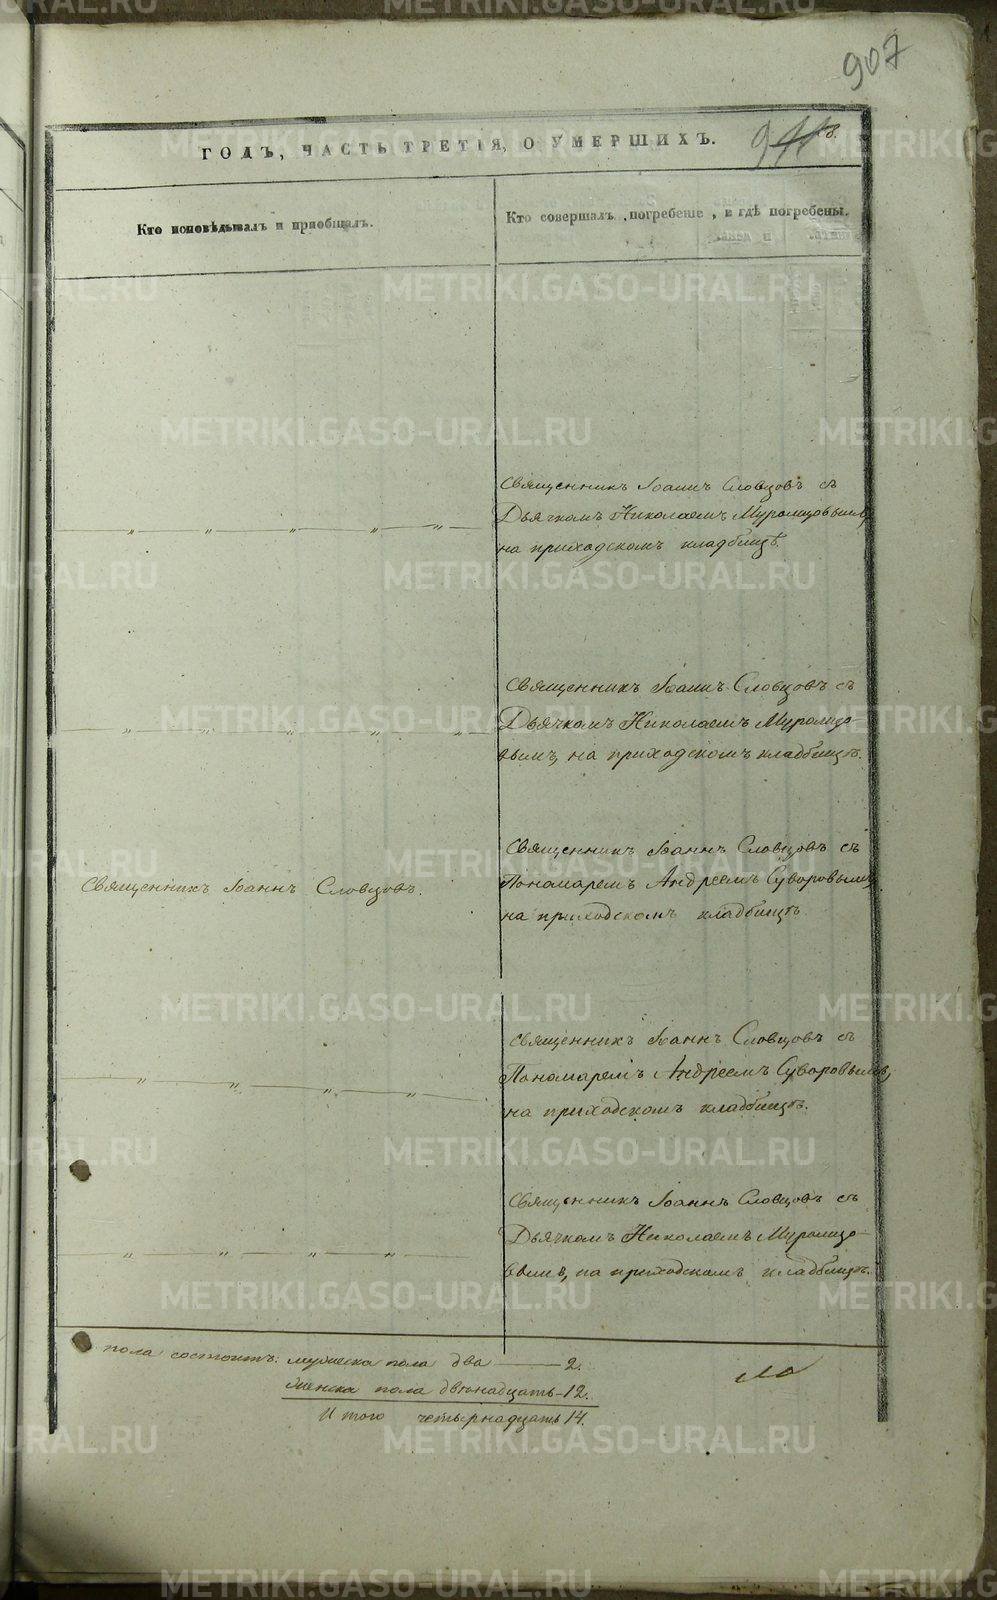 907
ГОДЪ, ЧАСТЬ ТРЕТІЯ, О УМЕРШИХЪ.
Кто исповѣдывалъ и приобщалъ.
Кто совершалъ погребеніе, и гдѣ погребены.
Священникъ Іоаннъ Словцовъ съ
Дьячкомъ Николаемъ Муромцовымъ,
на приходскомъ кладбищѣ.
Священникъ Іоаннъ Словцовъ съ
Дьячкомъ Николаемъ Муромцо-
вымъ, на приходскомъ кладбищѣ.
Священникъ Іоаннъ Словцовъ.
Священникъ Іоаннъ Словцовъ съ
Пономаремъ Андреемъ Суворовымъ,
на приходскомъ кладбищѣ.
Священникъ Іоаннъ Словцовъ съ
Пономаремъ Андреемъ Суворовымъ,
на приходскомъ кладбищѣ.
Священникъ Іоаннъ Словцовъ съ
Дьячкомъ Николаемъ Муромцо-
вымъ, на приходскомъ кладбищѣ.
пола состоитъ: мужеска пола два — 2.
Женска пола двѣнадцать - 12.
Итого четырнадцать 14.
METRIKI.GASO-URAL.RU